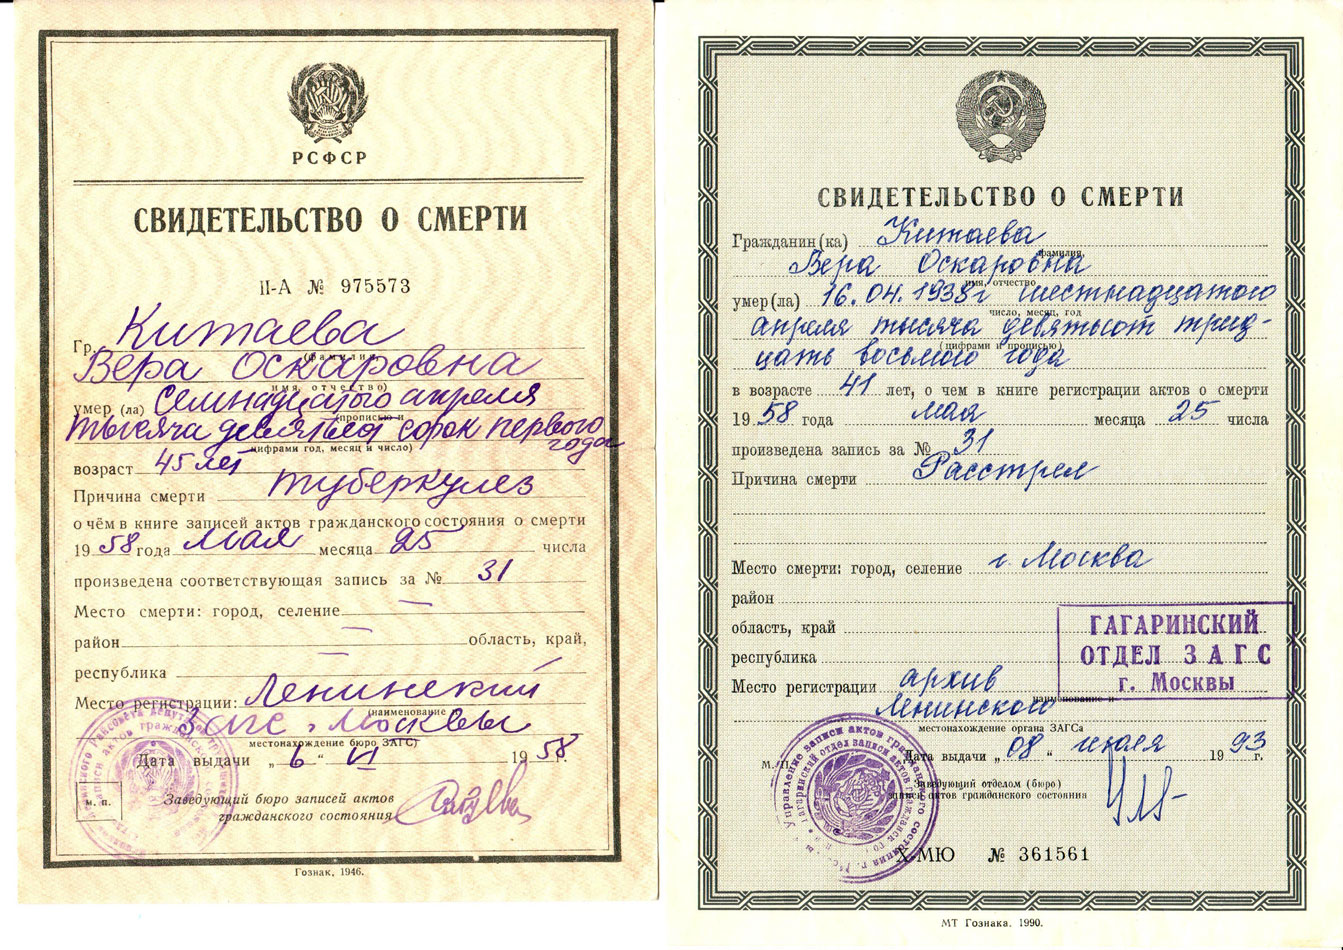 РСФСР
СВИДЕТЕЛЬСТВО О СМЕРТИ
II-А № 975573
Гр. Китаева
(фамилия,
Вера Оскаровна
имя, отчество)
умер (ла) Семнадцатого апреля
(прописью и
тысяча девятьсот сорок первого
года
цифрами год, месяц и число)
возраст 45 лет
Причина смерти туберкулез
о чём в книге записей актов гражданского состояния о смерти
1958 года мая месяца 25 числа
произведена соответствующая запись за № 31
Место смерти: город, селение —
район — область, край,
республика —
Место регистрации: Ленинский
(наименование и
Загс г. Москвы
местонахождение бюро ЗАГС)
Дата выдачи „ 6 “ VI 1958 г.
М. П.
Заведующий бюро записей актов
гражданского состояния
Гознак, 1946.
СВИДЕТЕЛЬСТВО О СМЕРТИ
Гражданин(ка) Китаева
фамилия,
Вера Оскаровна
имя, отчество
умер(ла) 16.04.1938г шестнадцатого
число, месяц, год
апреля тысяча девятьсот трид-
(цифрами и прописью)
цать восьмого года
в возрасте 41 лет, о чем в книге регистрации актов о смерти
1958 года мая месяца 25 числа
произведена запись за № 31
Причина смерти Расстрел
Место смерти: город, селение г. Москва
район
область, край
республика
ГАГАРИНСКИЙ
ОТДЕЛ ЗАГС
г. Москвы
Место регистрации архив
наименование и
Ленинского
местонахождение органа ЗАГСа
М.П. Дата выдачи „ 08 “ июля 1993 г.
Заведующий отделом (бюро)
записи актов гражданского состояния
X-МЮ № 361561
МТ Гознака. 1990.